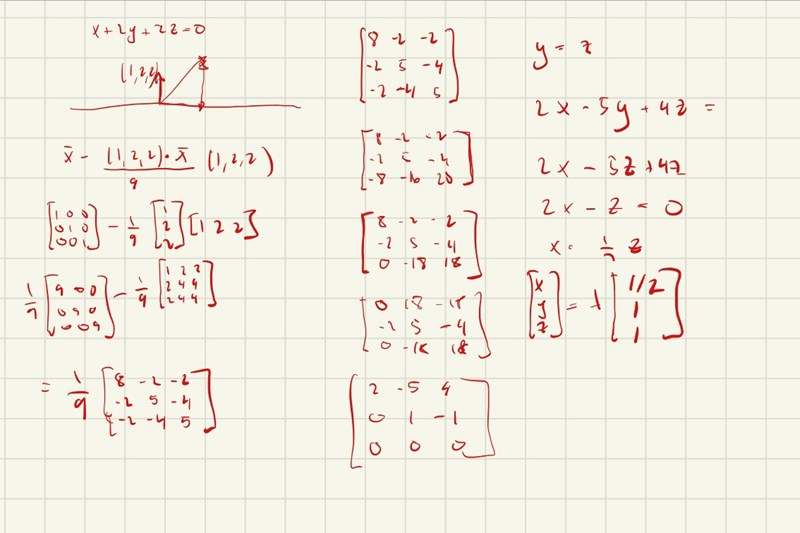 x + 2y + 2z = 0
(1,2,2)
x̄ - (1,2,2)·x̄ / 9 (1,2,2)
[1 0 0
0 1 0
0 0 1] - 1/9 [1
2
2] [1 2 2]
1/9 [9 0 0
0 9 0
0 0 9] - 1/9 [1 2 2
2 4 4
2 4 4]
= 1/9 [8 -2 -2
-2 5 -4
-2 -4 5]
[8 -2 -2
-2 5 -4
-2 -4 5]
[8 -2 -2
-2 5 -4
-8 -16 20]
[8 -2 -2
-2 5 -4
0 -18 18]
[0 18 -18
-2 5 -4
0 -18 18]
[2 -5 4
0 1 -1
0 0 0]
y = z
2x - 5y + 4z =
2x - 5z + 4z
2x - z = 0
x = 1/2 z
[x
y
z] = t [1/2
1
1]